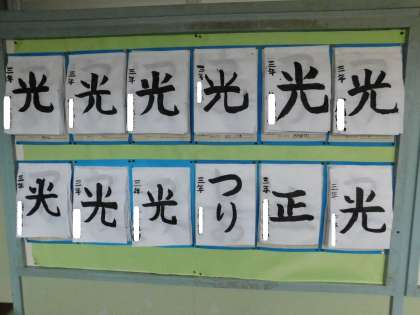 三年 光
三年 光
三年 光
三年 光
三年 光
三年 光
三年 光
三年 光
三年 光
三年 つり
三年 正
三年 光